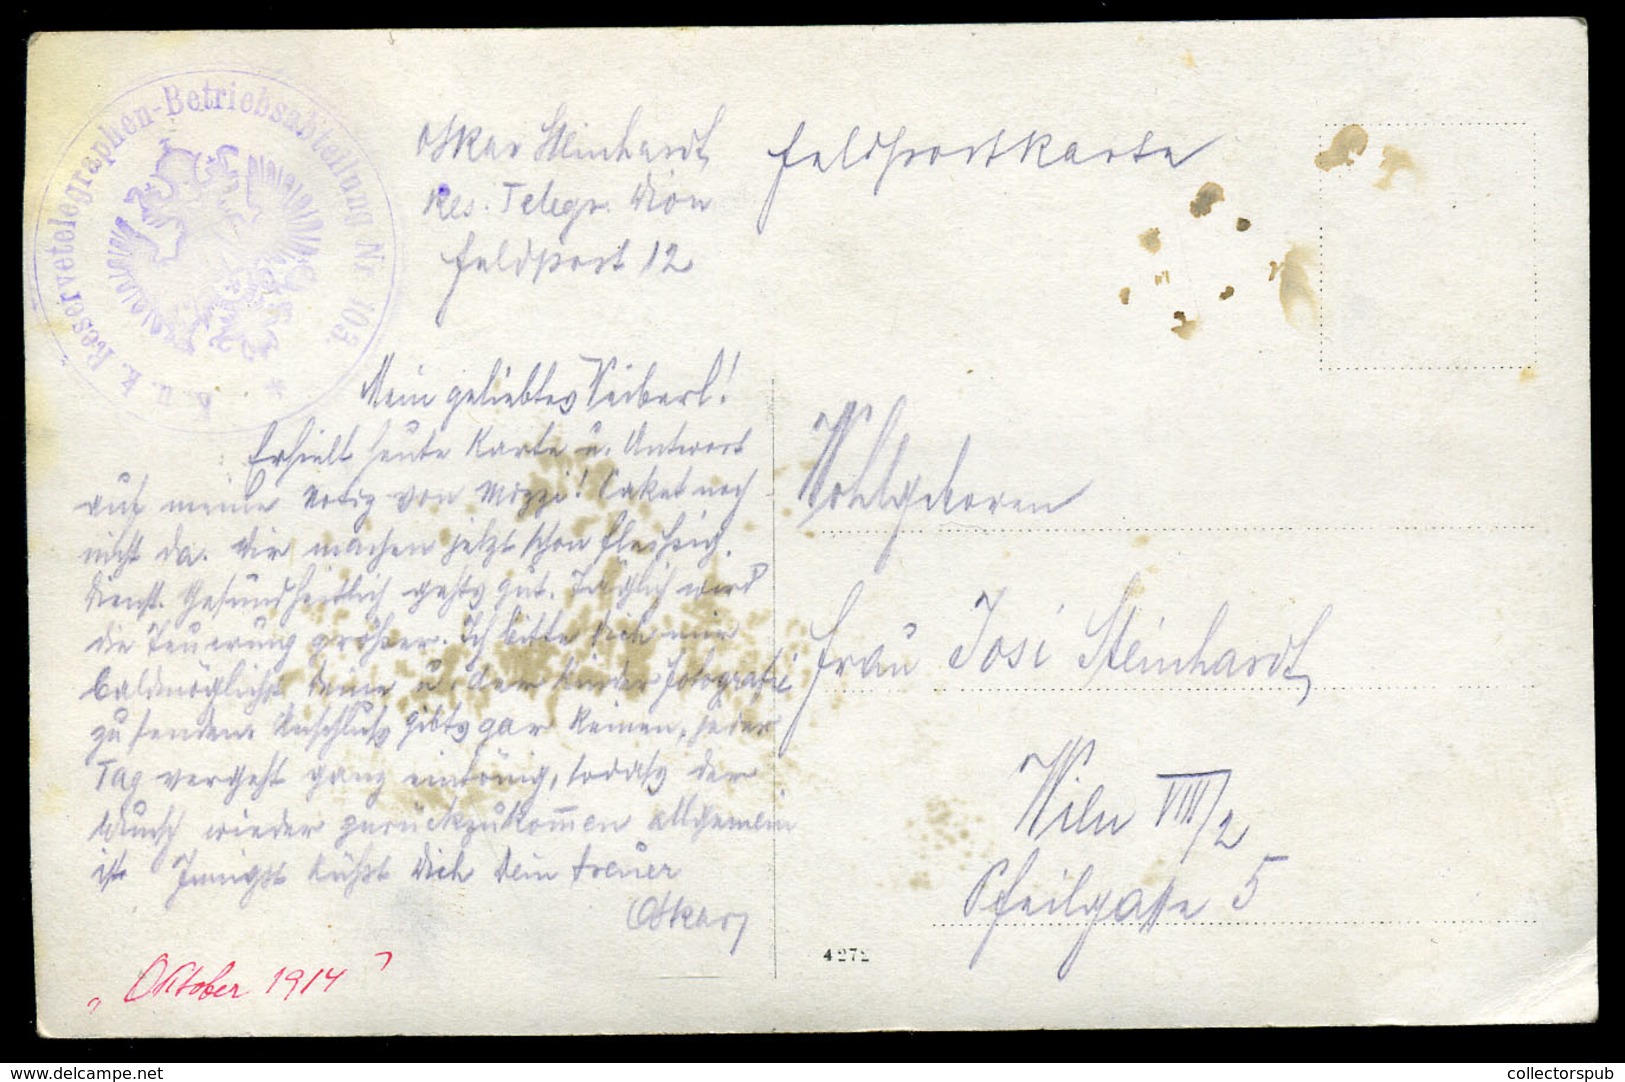 K. u. k. Reservetelegraphen-Betriebsabteilung Nr. 103.
Oskar Steinhardt
Res. Telegr. Dion
Feldpost 12
Feldpostkarte
Mein geliebtes Weiberl!
Erhielt heute Karte u. Antwort
auf meine Notiz von Mizzi! Paket noch
nicht da. Wir machen jetzt schon fleissig
Dienst. Gesundheitlich gehts gut. Täglich wird
die Teuerung grösser. Ich bitte Dich mir
baldmöglichst Deine u. der Kinder Fotografie
zu senden. Anschluss gibts gar keinen, jeder
Tag vergeht ganz eintönig, sodass der
Wunsch wieder zurückzukommen allgemein
ist. Innigst küsst Dich Dein treuer
Oskar
"Oktober 1914"
Wohlgeboren
Frau Josi Steinhardt
Wien VIII/2
Pfeilgasse 5
4272
www.delcampe.net
collectorspub